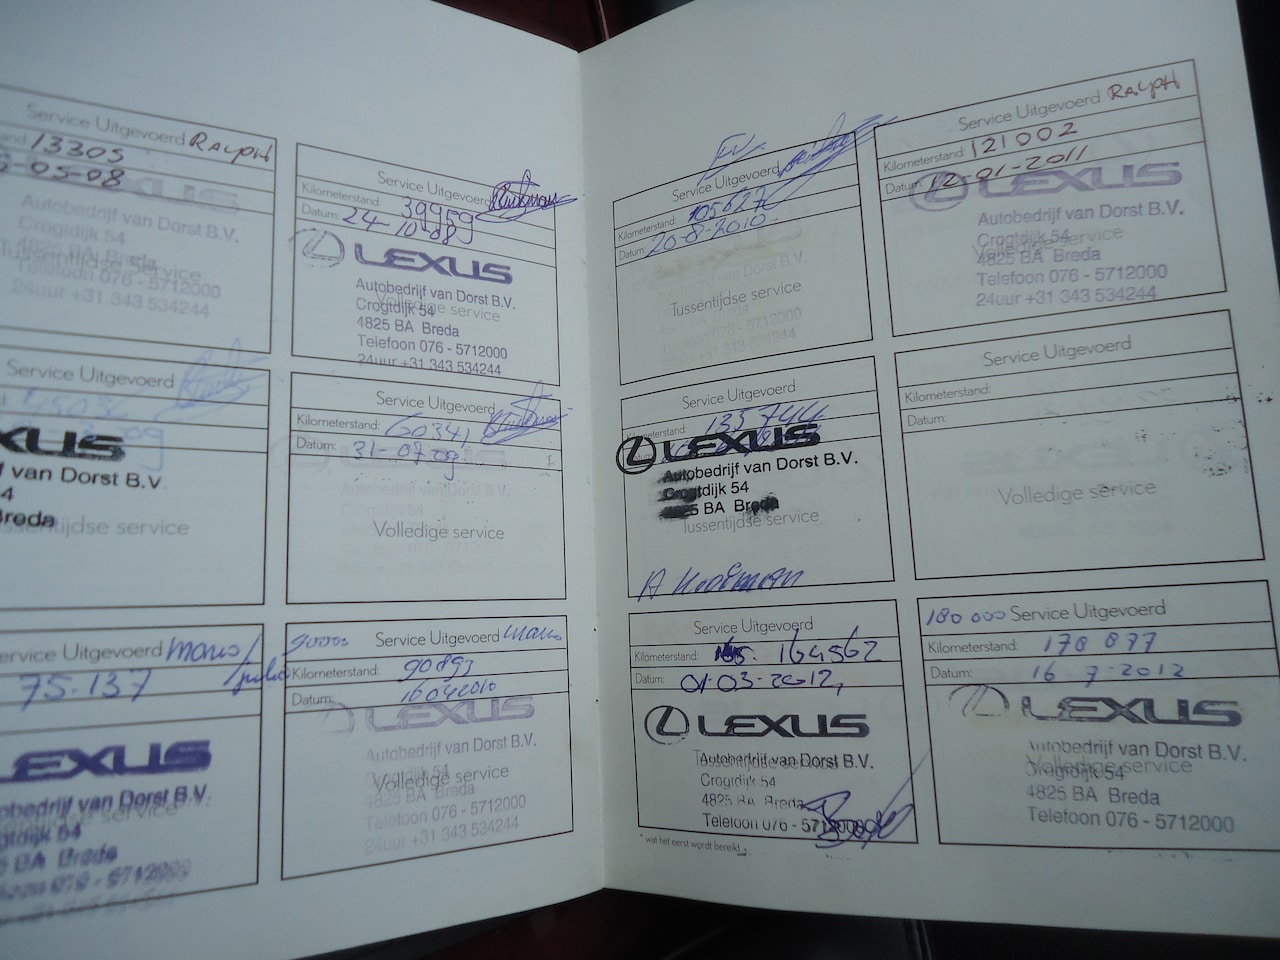 Service Uitgevoerd RALPH
13305
-05-08
LEXUS
Autobedrijf van Dorst B.V.
Crogtdijk 54
4825 BA Breda
Tussentijdse service
Telefoon 076 - 5712000
24uur +31 343 534244
Service Uitgevoerd
Kilometerstand: 39959
Datum: 24-10-08
LEXUS
Autobedrijf van Dorst B.V.
Volledige service
Crogtdijk 54
4825 BA Breda
Telefoon 076 - 5712000
24uur +31 343 534244
Service Uitgevoerd
XUS
van Dorst B.V.
4
Breda
ussentijdse service
Service Uitgevoerd
Kilometerstand: 60341
Datum: 31-07-09
Volledige service
ervice Uitgevoerd Mario/
75.137
EXUS
obedrijf van Dorst B.V.
service
gtdijk 54
5 BA Breda
076 - 5712000
90000 Service Uitgevoerd Mario
Kilometerstand: 90893
Datum: 16042010
LEXUS
Autobedrijf van Dorst B.V.
Crogtdijk 54
Volledige service
4825 BA Breda
Telefoon 076 - 5712000
24uur +31 343 534244
Service Uitgevoerd
Kilometerstand: 105627
Datum: 20-8-2010
van Dorst B.V.
Tussentijdse service
076 - 5712000
Service Uitgevoerd RALPH
Kilometerstand: 121002
Datum: 12-01-2011
LEXUS
Autobedrijf van Dorst B.V.
Crogtdijk 54
Volledige service
4825 BA Breda
Telefoon 076 - 5712000
24uur +31 343 534244
Service Uitgevoerd
135744
LEXUS
Autobedrijf van Dorst B.V.
Crogtdijk 54
4825 BA Breda
Tussentijdse service
Service Uitgevoerd
Kilometerstand:
Datum:
Volledige service
Service Uitgevoerd
Kilometerstand: 164562
Datum: 01-03-2012,
LEXUS
Autobedrijf van Dorst B.V.
Tussentijdse service
Crogtdijk 54
4825 BA Breda
Telefoon 076 - 5712000
* wat het eerst wordt bereikt
180 000 Service Uitgevoerd
Kilometerstand: 178 877
Datum: 16-7-2012
LEXUS
Autobedrijf van Dorst B.V.
Volledige service
Crogtdijk 54
4825 BA Breda
Telefoon 076 - 5712000